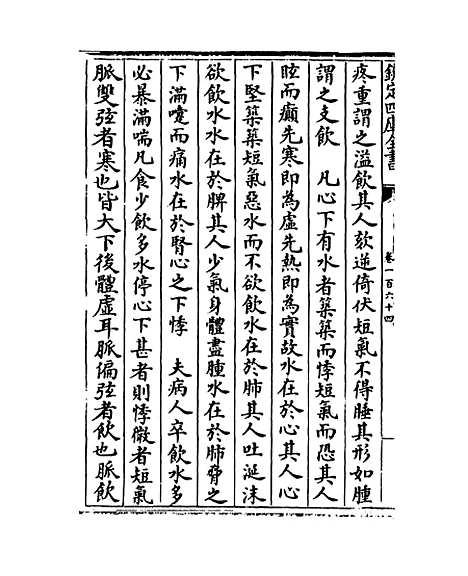 欽定四庫全書
卷一百六十四
疼重謂之溢飲其人欬逆倚伏短氣不得睡其形如腫
謂之支飲　凡心下有水者築築而悸短氣而恐其人
眩而癲先寒即為虛先熱即為實故水在於心其人心
下堅築築短氣惡水而不欲飲水在於肺其人吐涎沫
欲飲水水在於脾其人少氣身體盡腫水在於肺脅之
下滿嚏而痛水在於腎心之下悸　夫病人卒飲水多
必暴滿喘凡食少飲多水停心下甚者則悸微者短氣
脈雙弦者寒也皆大下後體虛耳脈偏弦者飲也脈飲